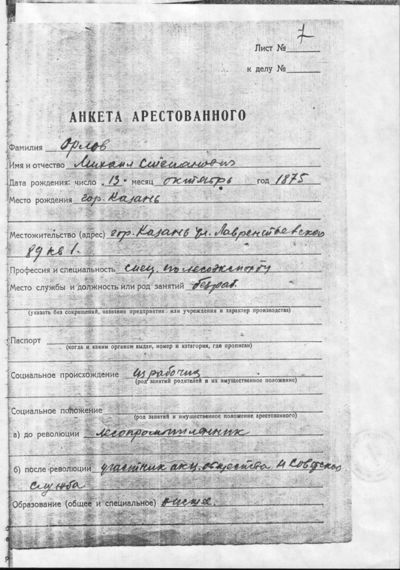 7
Лист №
к делу №
АНКЕТА АРЕСТОВАННОГО
Фамилия Орлов
Имя и отчество Михаил Степанович
Дата рождения: число 13 месяц октябрь год 1875
Место рождения гор. Казань
Местожительство (адрес) гор. Казань ул. Лаврентьевского
89 кв 1.
Профессия и специальность спец. по лесоэкспорту
Место службы и должность или род занятий безраб.
(указать без сокращений, название предприятия или учреждения и характер производства)
Паспорт
(когда и каким органом выдан, номер и категория, где прописан)
Социальное происхождение из рабочих
(род занятий родителей и их имущественное положение)
Социальное положение
(род занятий и имущественное положение арестованного)
а) до революции лесопромышленник
б) после революции участник акц. общества и Советская
служба
Образование (общее и специальное) высшее.